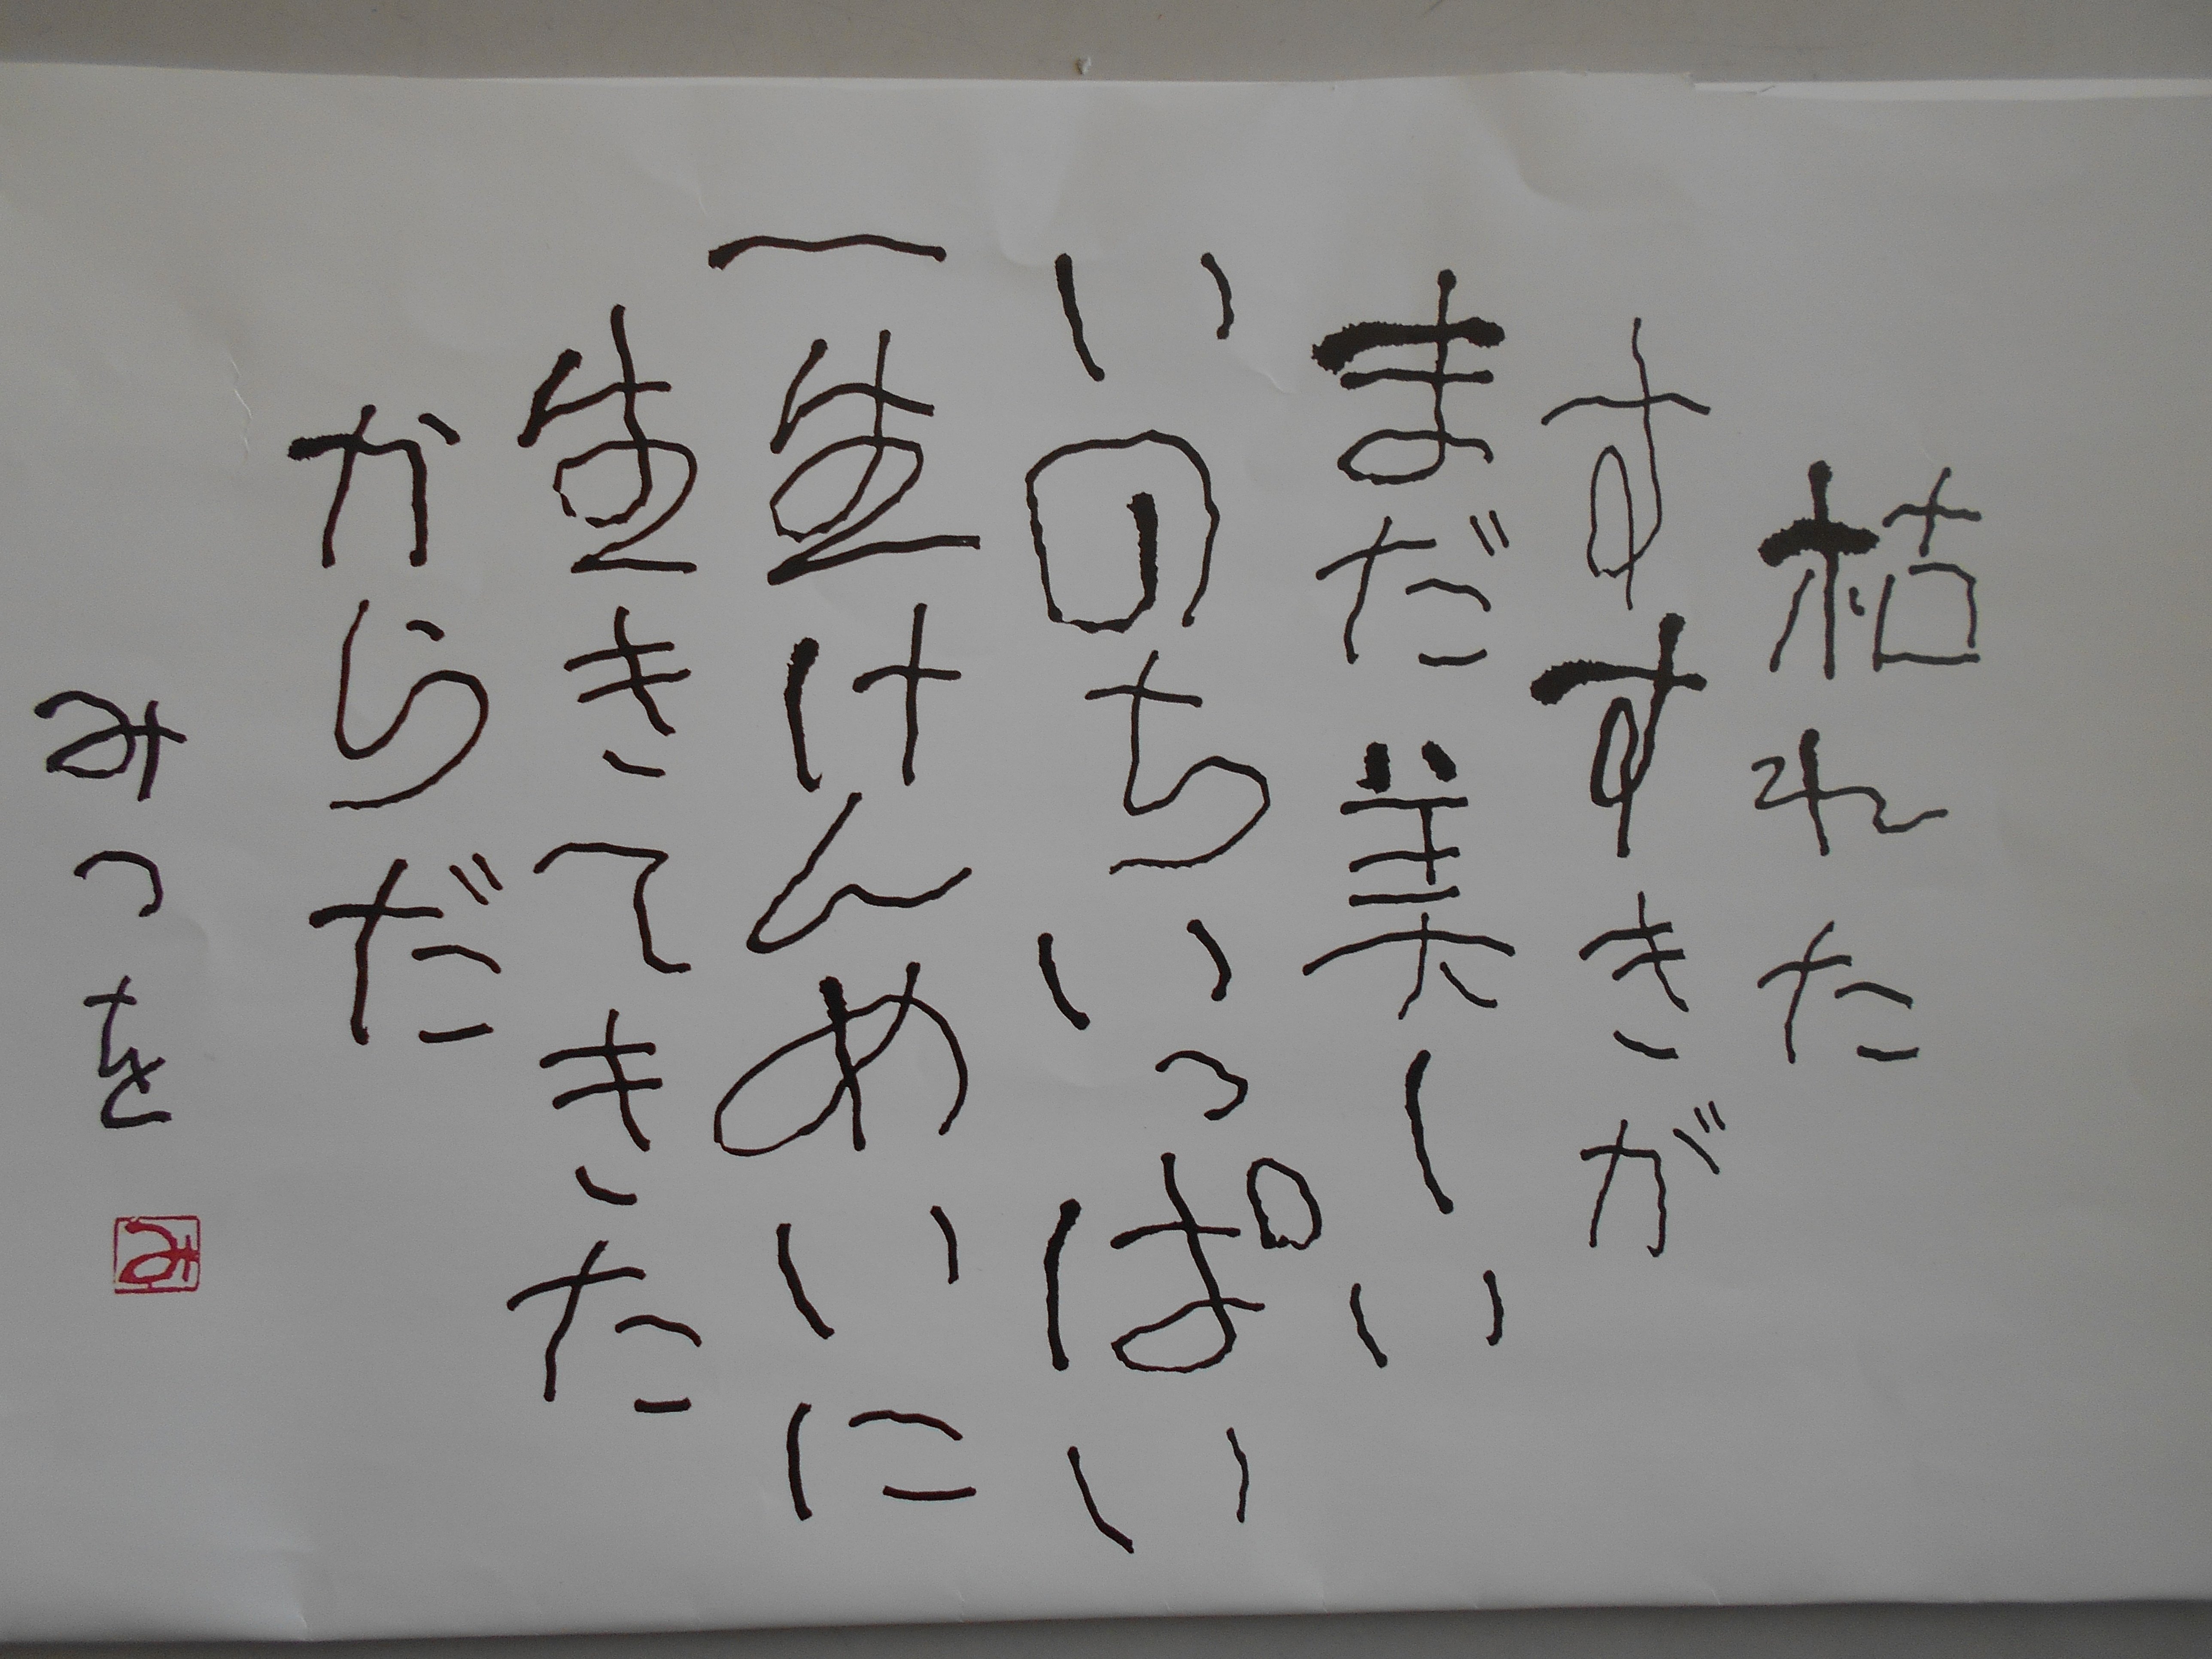 枯れた
すすきが
まだ美しい
いのちいっぱい
一生けんめいに
生きてきた
からだ
みつを
み